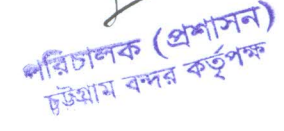 পরিচালক (প্রশাসন)
চট্টগ্রাম বন্দর কর্তৃপক্ষ